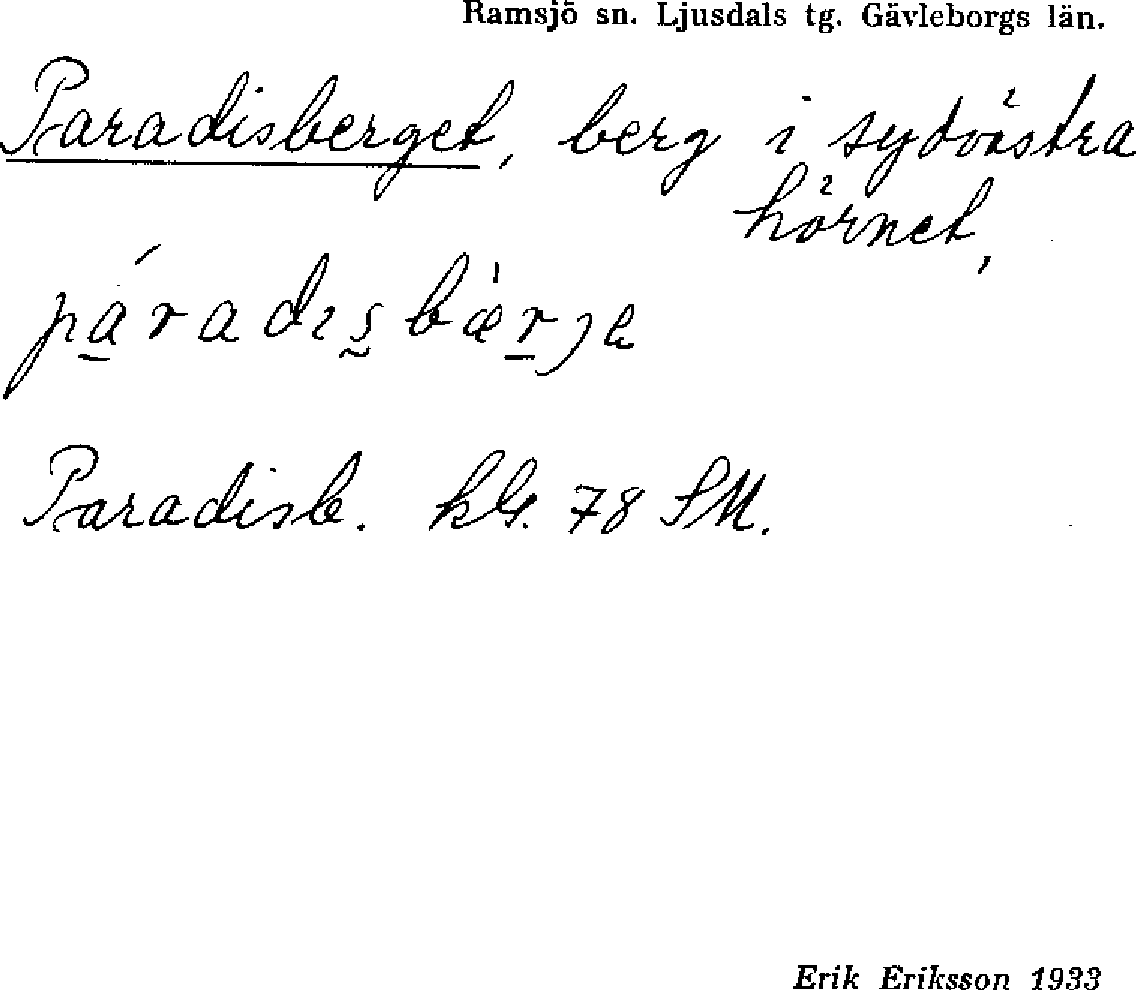 Ramsjö sn. Ljusdals tg. Gävleborgs län.
Paradisberget, berg i sydvästra
hörnet,
Paradisb. kbl. 78 SM.
Erik Eriksson 1933